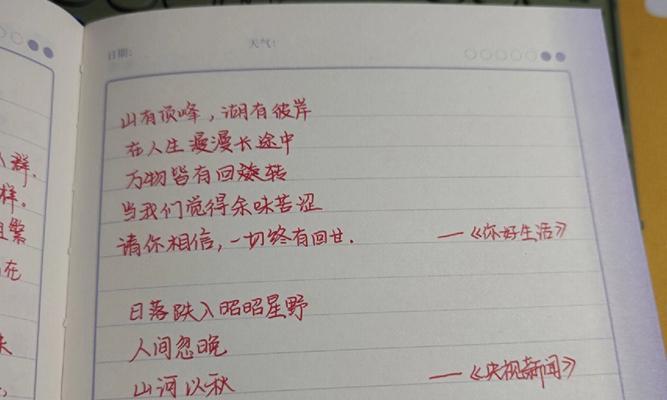 日期: 天气:
群.
样。
在
山有顶峰，湖有彼岸
在人生漫漫长途中
万物皆有回旋转
当我们觉得余味苦涩
请你相信，一切终有回甘. —《你好生活》
日落跌入昭昭星野
人间忽晚
山河以秋 —《央视新闻》